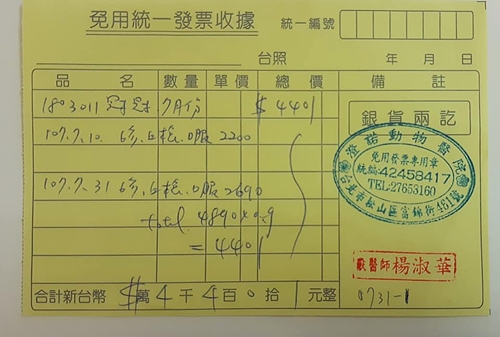 免用統一發票收據
統一編號
台照 年 月 日
品名 數量 單價 總價 備註
1803011 冠冠 7月份 $4401
銀貨兩訖
107.7.10. 口服 2200
107.7.31 口服 2690
total 4890×0.9
=4401
澄諾動物醫院
免用發票專用章
統編:42458417
TEL:27653160
台北市松山區富錦街
獸醫師 楊淑華
合計新台幣 $ 萬 4 千 4 百 0 拾 1 元整
0731-1